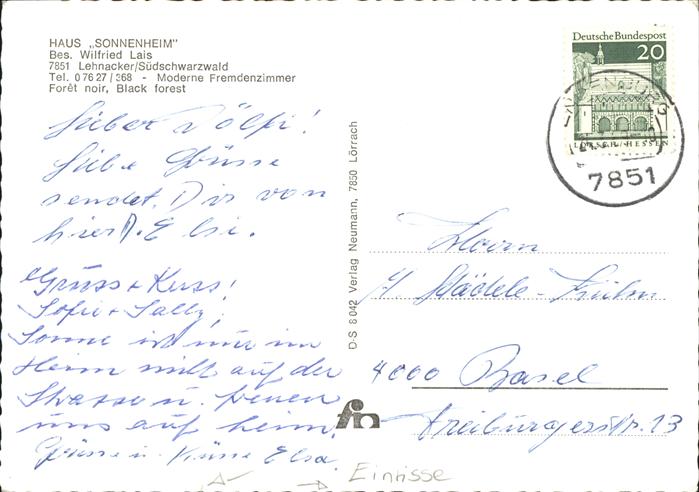 HAUS „SONNENHEIM"
Bes. Wilfried Lais
7851 Lehnacker/Südschwarzwald
Tel. 0 76 27 / 268 - Moderne Fremdenzimmer
Forêt noir, Black forest
Deutsche Bundespost
20
LORSCH/HESSEN
7851
Lieber Dölfi!
Liebe Grüsse
sendet Dir von
hier Elsi.
Gruss + Kuss!
Sofie + Sally!
Sonne ist nur im
Heim nicht auf der
Strasse u. freuen
uns auf heim.
Grüsse u. Küsse Elsa
D-S 8042 Verlag Neumann, 7850 Lörrach
Herrn
Städele-Kuhn
4000 Basel
Freiburgerstr. 13
Einrisse